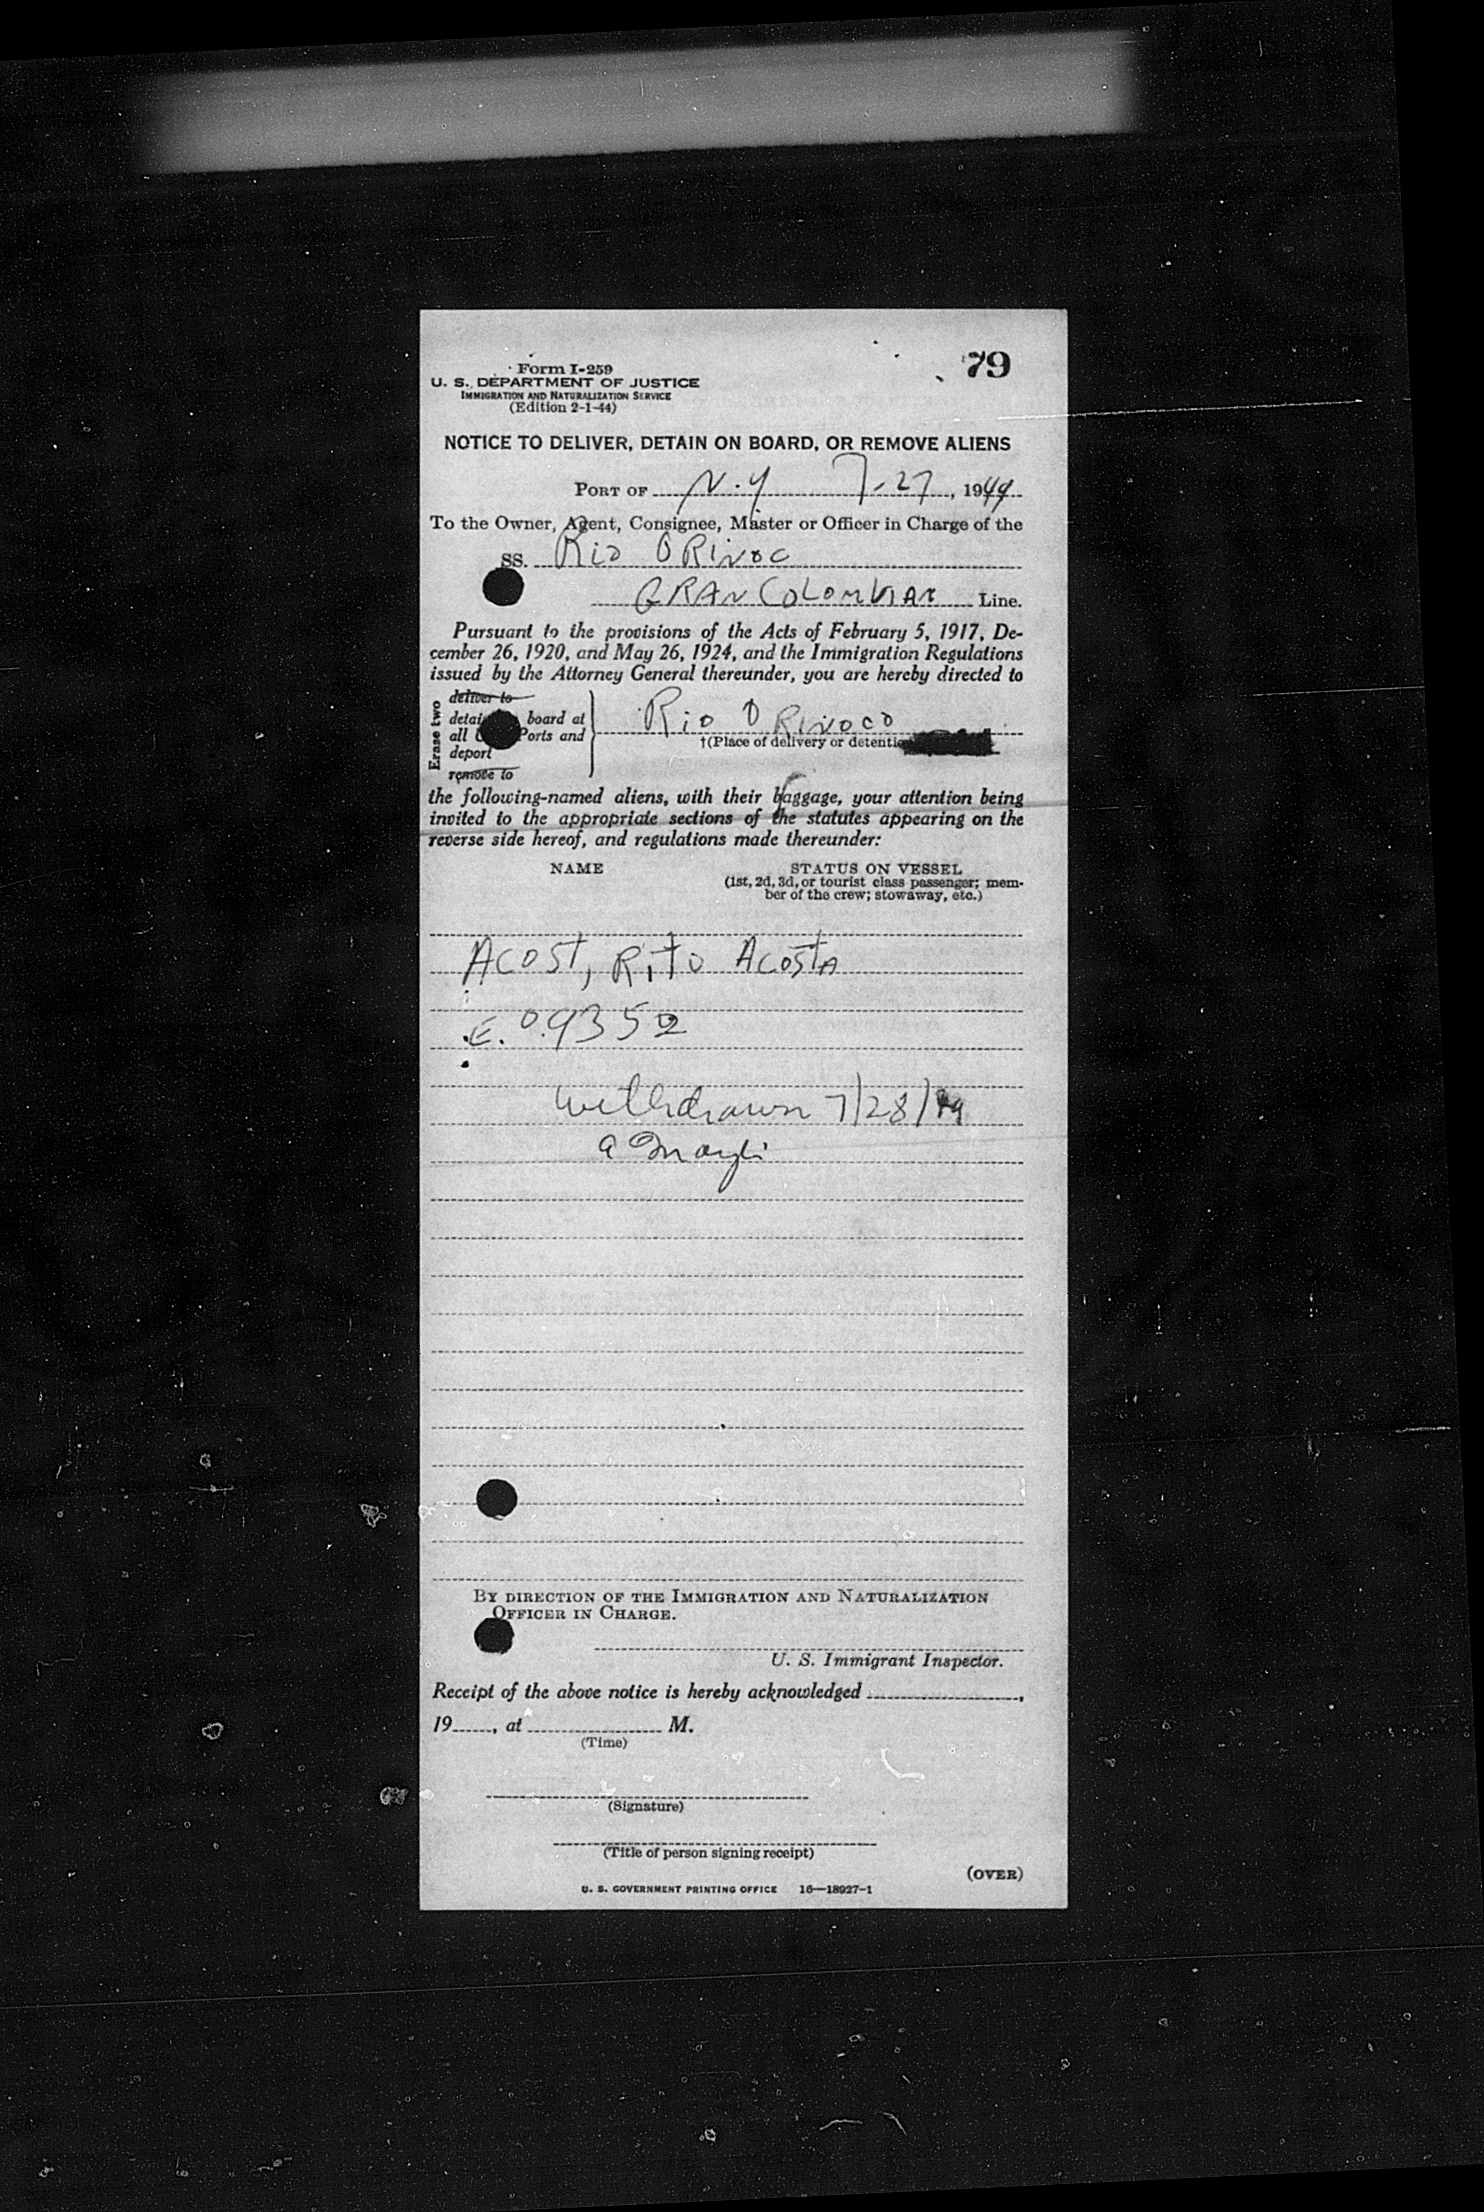 79
Form I-259
U. S. DEPARTMENT OF JUSTICE
IMMIGRATION AND NATURALIZATION SERVICE
(Edition 2-1-44)
NOTICE TO DELIVER, DETAIN ON BOARD, OR REMOVE ALIENS
PORT OF N.Y 7-27, 1949
To the Owner, Agent, Consignee, Master or Officer in Charge of the
SS. Rio ORinoc
GRAN COLOMBIAN Line.
Pursuant to the provisions of the Acts of February 5, 1917, De-
cember 26, 1920, and May 26, 1924, and the Immigration Regulations
issued by the Attorney General thereunder, you are hereby directed to
Erase two
deliver to
detain board at
all Ports and
deport
remove to
Rio ORinoco
†(Place of delivery or detention
the following-named aliens, with their baggage, your attention being
invited to the appropriate sections of the statutes appearing on the
reverse side hereof, and regulations made thereunder:
NAME STATUS ON VESSEL
(1st, 2d, 3d, or tourist class passenger; mem-
ber of the crew; stowaway, etc.)
Acost, Rito Acosta
E. 0.9352
Withdrawn 7/28/49
BY DIRECTION OF THE IMMIGRATION AND NATURALIZATION
OFFICER IN CHARGE.
U. S. Immigrant Inspector.
Receipt of the above notice is hereby acknowledged ,
19 , at M.
(Time)
(Signature)
(Title of person signing receipt)
(OVER)
U. S. GOVERNMENT PRINTING OFFICE 16—18927-1